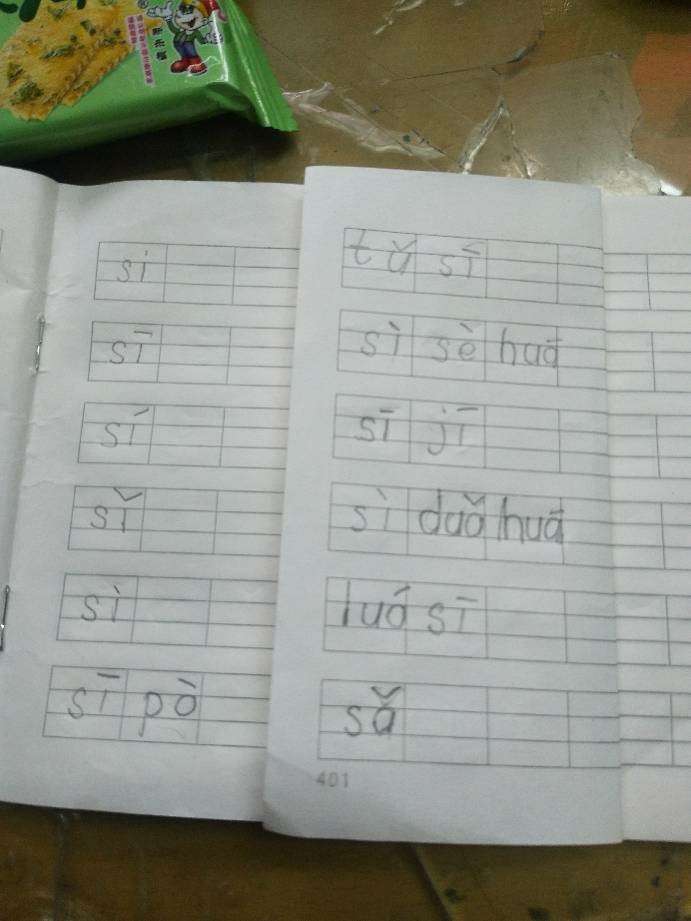 si
sī
sí
sǐ
sì
sī pò
tǔ sī
sì sè huā
sī jī
sì duǒ huā
luó sī
sǎ
401